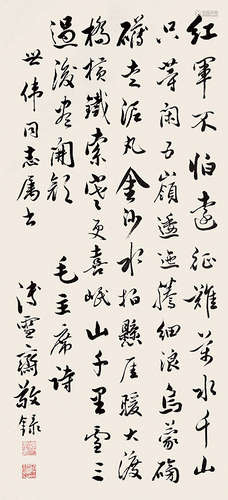 红軍不怕遠征難萬水千山
只等闲五嶺逶迤騰細浪烏蒙磅
礴走泥丸金沙水拍懸崖暖大渡
橋横鐵索寒更喜岷山千里雪三
過後盡開顔 毛主席詩
世偉同志属書 溥雪齋敬録